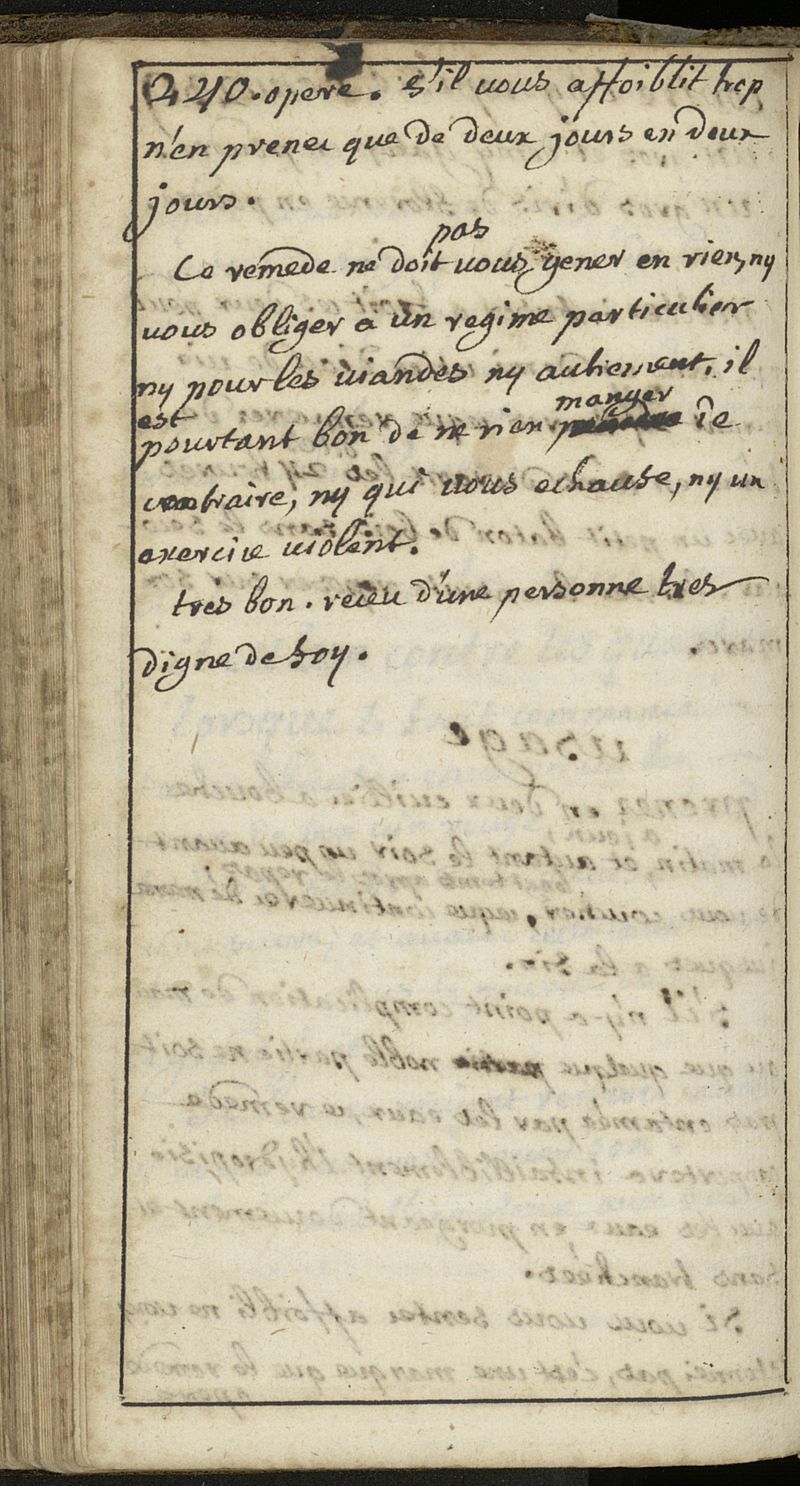 240. opere. s'il vous affoiblit trop
n'en prenez que de deux jours en deux
jours.
pas
Ce remede ne doit vous gener en rien, ny
vous obliger a un regime particulier
ny pour les viandes ny autrement, il
est manger
pourtant bon de ne rien de
contraire, ny qui vous echaufe, ny un
exercice violent.
tres bon. receu d'une personne tres
digne de foy.